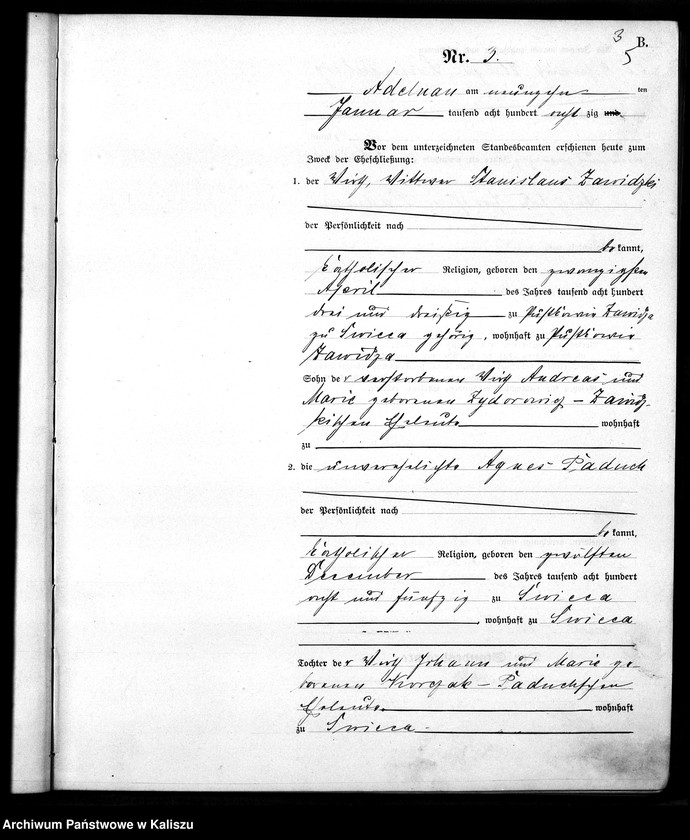 3
B.
5
Nr. 3.
Adelnau am neunzehn ten
Januar tausend acht hundert acht zig und
Vor dem unterzeichneten Standesbeamten erschienen heute zum
Zweck der Eheschließung:
1. der Wirth, Wittwer Stanislaus Zawidzki
der Persönlichkeit nach
be kannt,
katholischer Religion, geboren den zwanzigsten
April des Jahres tausend acht hundert
drei und dreißig zu Pustkowie Zawidza
zu Swieca gehörig, wohnhaft zu Pustkowie
Zawidza
Sohn der verstorbenen Wirth Andreas und
Marie geborenen Zydorowicz – Zawidz-
kischen Eheleute wohnhaft
zu
2. die unverehelichte Agnes Paduch
der Persönlichkeit nach
be kannt,
katholischer Religion, geboren den zwölften
December des Jahres tausend acht hundert
acht und fünfzig zu Swieca
, wohnhaft zu Swieca
Tochter der Wirth Johann und Marie ge-
borenen Korzak – Paduchschen
Eheleute wohnhaft
zu Swieca.
Archiwum Państwowe w Kaliszu